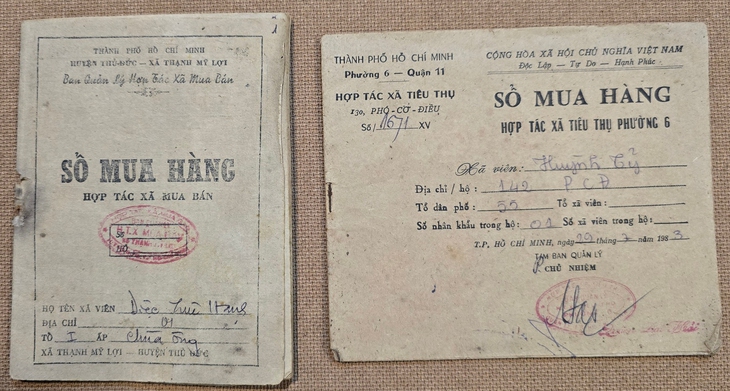 THÀNH PHỐ HỒ CHÍ MINH
HUYỆN THỦ-ĐỨC - XÃ THẠNH MỸ LỢI
Ban Quản Lý Hợp Tác Xã Mua Bán
SỔ MUA HÀNG
HỢP TÁC XÃ MUA BÁN
SỐ
HỌ TÊN XÃ VIÊN Diệc
ĐỊA CHỈ 01
TỔ I ẤP Chùa Ông
XÃ THẠNH MỸ LỢI - HUYỆN THỦ ĐỨC
THÀNH PHỐ HỒ CHÍ MINH
Phường 6 — Quận 11
HỢP TÁC XÃ TIÊU THỤ
130, PHÓ-CƠ-ĐIỀU
Số/ 1671 XV
CỘNG HÒA XÃ HỘI CHỦ NGHĨA VIỆT NAM
Độc Lập — Tự Do — Hạnh Phúc
SỔ MUA HÀNG
HỢP TÁC XÃ TIÊU THỤ PHƯỜNG 6
Xã viên: Huỳnh Tỷ
Địa chỉ / hộ : 142 P C Đ
Tổ dân phố : 55 Tổ xã viên :
Số nhân khẩu trong hộ : 01 Số xã viên trong hộ :
T.P, HỒ CHÍ MINH, ngày 29 tháng 7 năm 1983
T/M BAN QUẢN LÝ
CHỦ NHIỆM